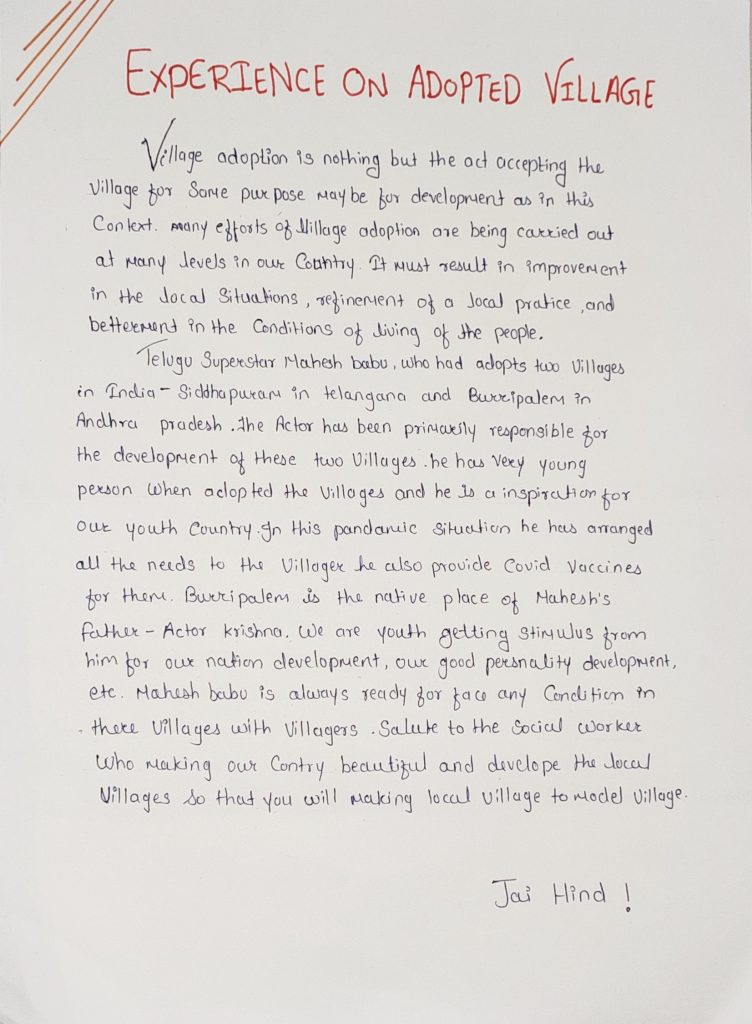 EXPERIENCE ON ADOPTED VILLAGE
Village adoption is nothing but the act accepting the
village for some purpose may be for development as in this
Context. many efforts of Village adoption are being carried out
at many levels in our Country. It must result in improvement
in the local situations, refinement of a local pratice, and
betterment in the Conditions of living of the people.
Telugu Superstar Mahesh babu, who had adopts two Villages
in India - Siddhapuram in telangana and Burripalem in
Andhra pradesh. the Actor has been primarily responsible for
the development of these two Villages. he has very young
person when adopted the villages and he is a inspiration for
our youth Country. In this pandamic situation he has arranged
all the needs to the Villager he also provide Covid Vaccines
for them. Burripalem is the native place of Mahesh's
father - Actor krishna. We are youth getting stimulus from
him for our nation development, our good persnality development,
etc. Mahesh babu is always ready for face any Condition in
there Villages with Villagers. Salute to the Social worker
Who making our Contry beautiful and develope the local
Villages so that you will making local village to model village.
Jai Hind !